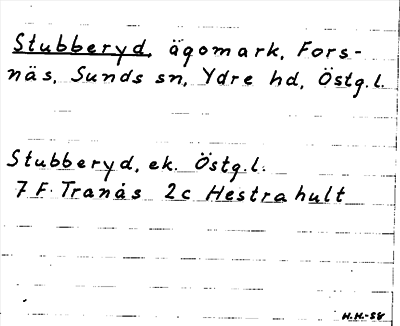 Stubberyd, ägomark, Fors-
näs, Sunds sn, Ydre hd, Östg.l.
Stubberyd, ek. Östg.l.
7 F. Tranås 2c Hestrahult
H.H.-58